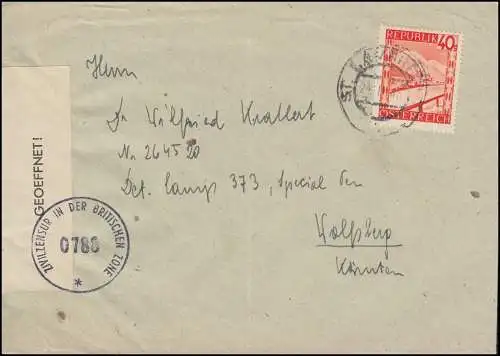 REPUBLIK 40 g
ÖSTERREICH
ST.
Herrn
Dr Wilfried Krallert
Nr 264520
Det. Camp 373, Special Pen
Wolfsberg
Kärnten
GEOEFFNET!
ZIVILZENSUR IN DER BRITISCHEN ZONE
0786
*